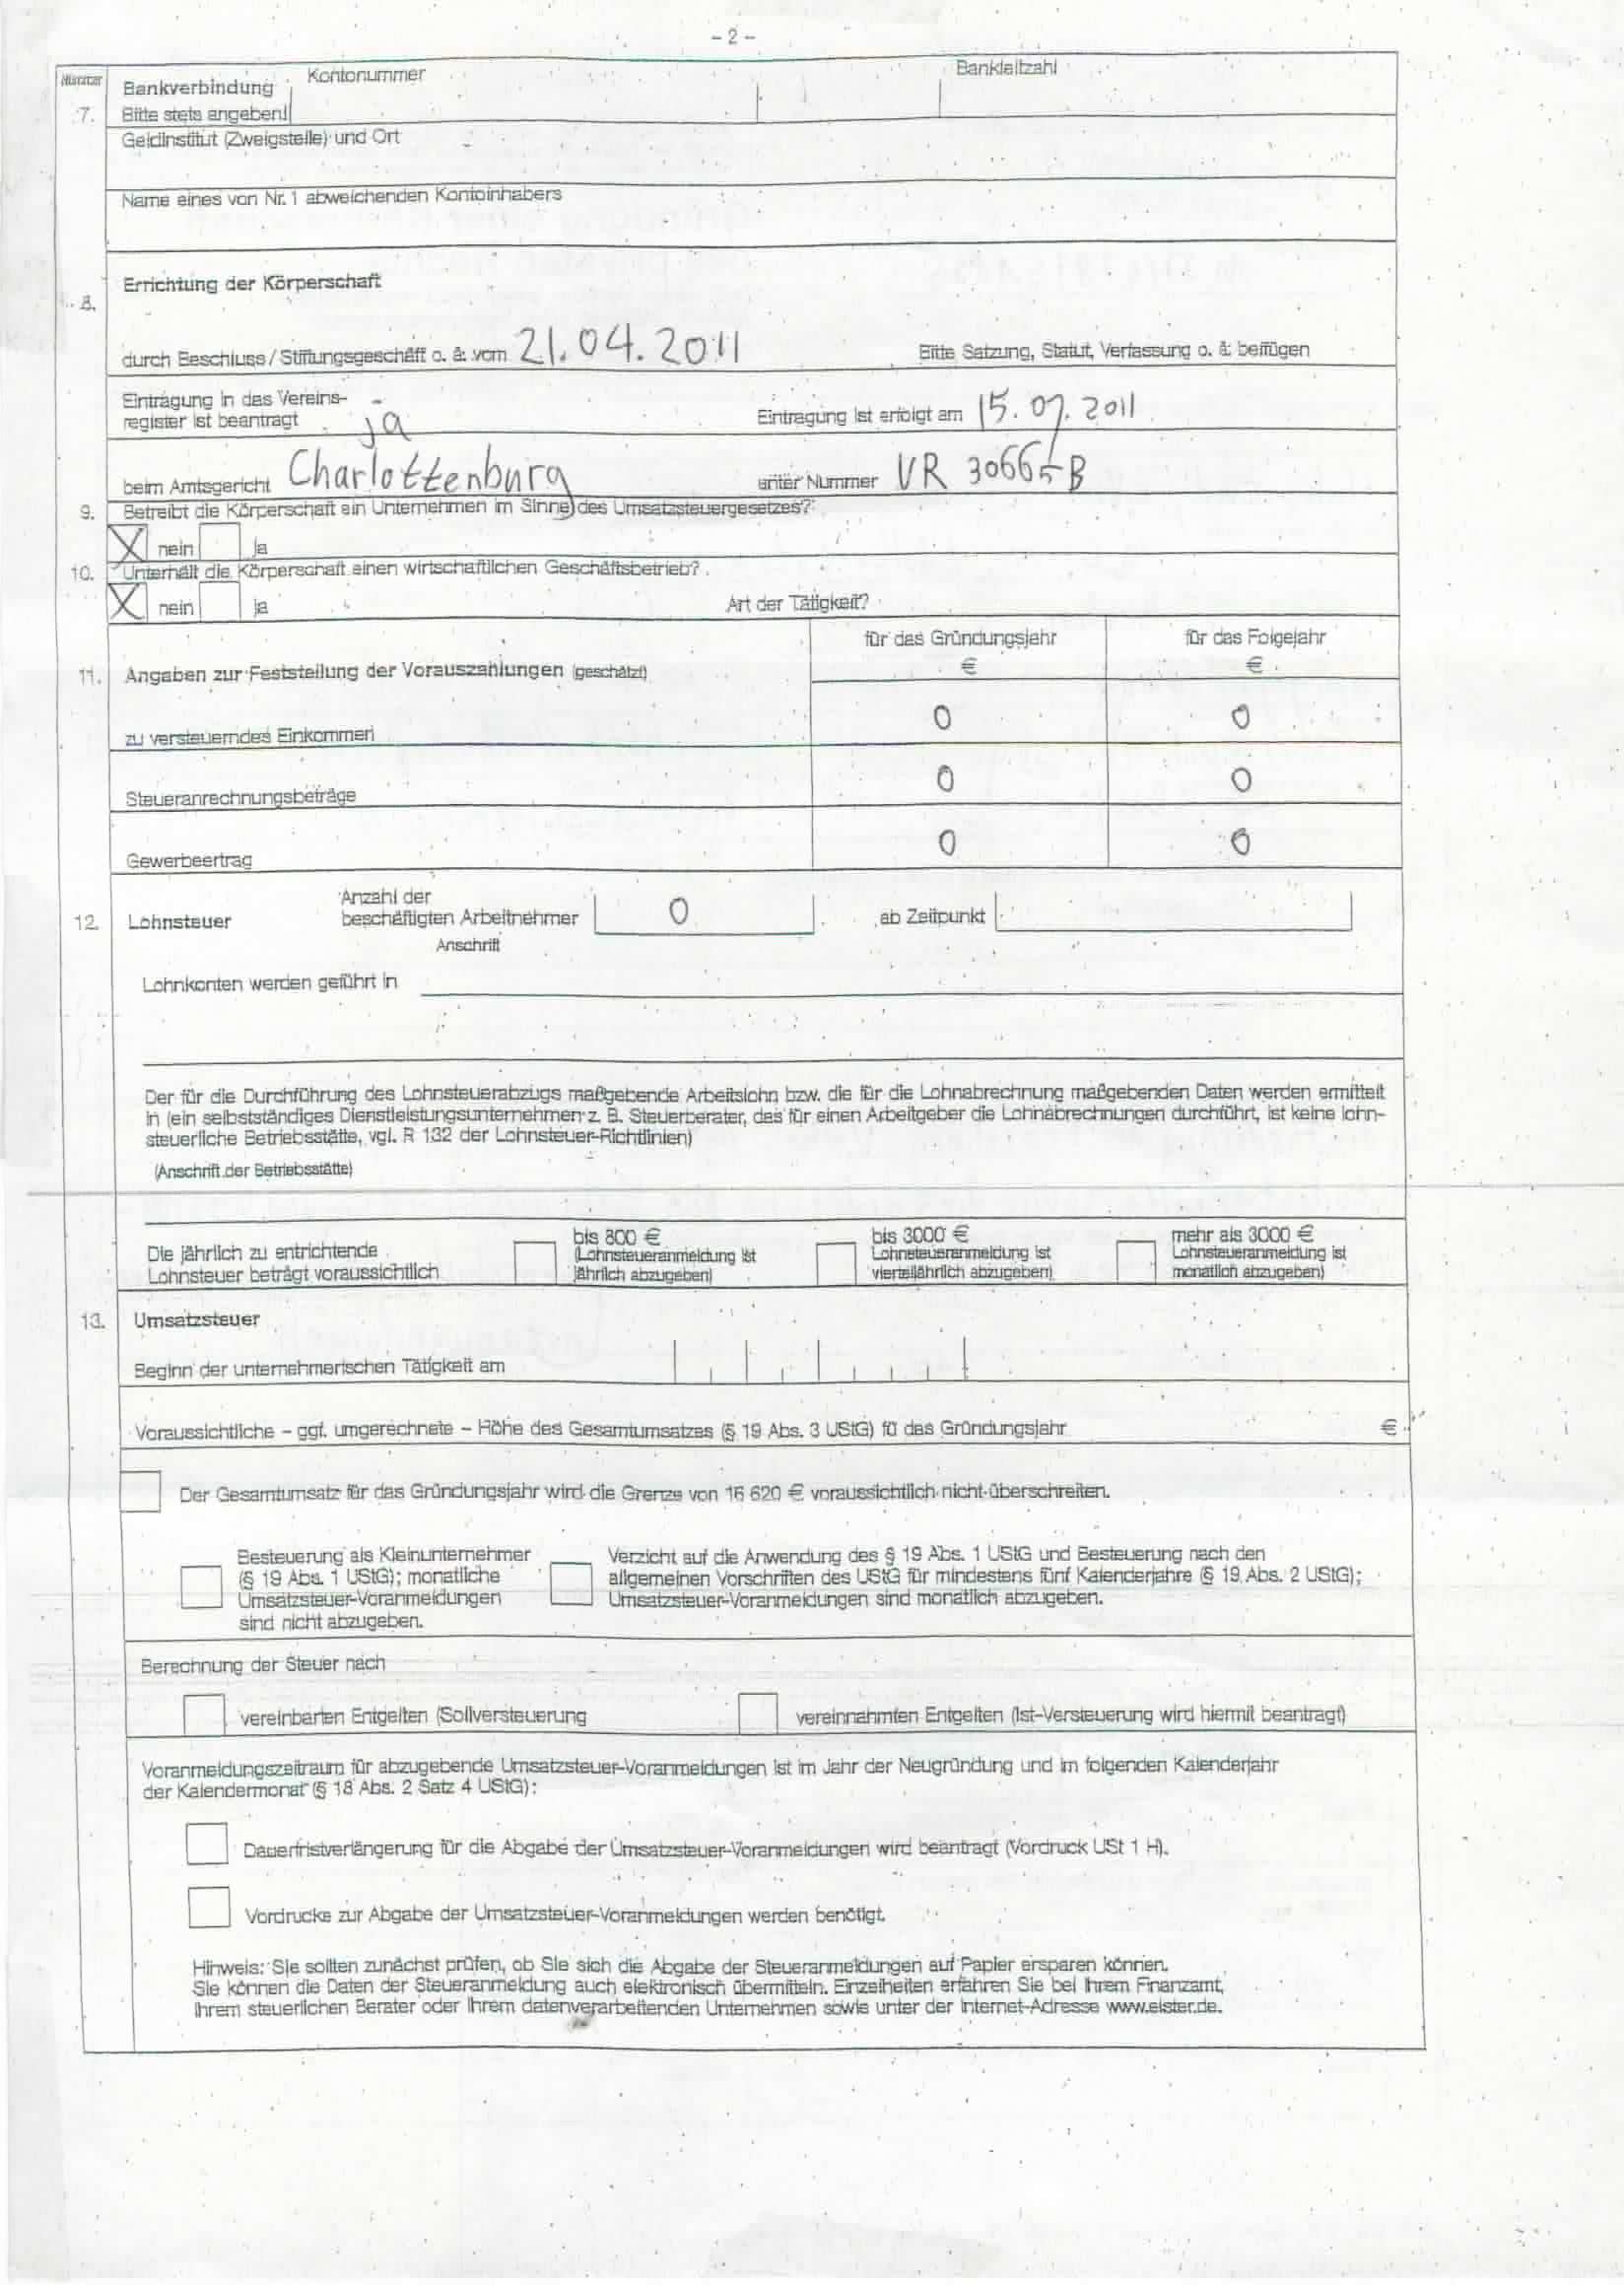 - 2 -
Nummer
Kontonummer
Bankleitzahl
Bankverbindung
7. Bitte stets angeben!
Geldinstitut (Zweigstelle) und Ort
Name eines von Nr. 1 abweichenden Kontoinhabers
Errichtung der Körperschaft
8.
durch Beschluss / Stiftungsgeschäft o. ä. vom 21.04.2011 Bitte Satzung, Statut, Verfassung o. ä. beifügen
Eintragung in das Vereins-
register ist beantragt ja Eintragung ist erfolgt am 15.07.2011
beim Amtsgericht Charlottenburg unter Nummer VR 30665 B
9. Betreibt die Körperschaft ein Unternehmen im Sinne des Umsatzsteuergesetzes?
X nein ja
10. Unterhält die Körperschaft einen wirtschaftlichen Geschäftsbetrieb?
X nein ja Art der Tätigkeit?
für das Gründungsjahr für das Folgejahr
€ €
11. Angaben zur Feststellung der Vorauszahlungen (geschätzt)
zu versteuerndes Einkommen 0 0
Steueranrechnungsbeträge 0 0
Gewerbeertrag 0 0
Anzahl der
12. Lohnsteuer beschäftigten Arbeitnehmer 0 ab Zeitpunkt
Anschrift
Lohnkonten werden geführt in
Der für die Durchführung des Lohnsteuerabzugs maßgebende Arbeitslohn bzw. die für die Lohnabrechnung maßgebenden Daten werden ermittelt
in (ein selbstständiges Dienstleistungsunternehmen z. B. Steuerberater, das für einen Arbeitgeber die Lohnabrechnungen durchführt, ist keine lohn-
steuerliche Betriebsstätte, vgl. R 132 der Lohnsteuer-Richtlinien)
(Anschrift der Betriebsstätte)
bis 800 € bis 3000 € mehr als 3000 €
Die jährlich zu entrichtende (Lohnsteueranmeldung ist Lohnsteueranmeldung ist Lohnsteueranmeldung ist
Lohnsteuer beträgt voraussichtlich jährlich abzugeben) vierteljährlich abzugeben) monatlich abzugeben)
13. Umsatzsteuer
Beginn der unternehmerischen Tätigkeit am
Voraussichtliche - ggf. umgerechnete - Höhe des Gesamtumsatzes (§ 19 Abs. 3 UStG) fü das Gründungsjahr €
Der Gesamtumsatz für das Gründungsjahr wird die Grenze von 16 620 € voraussichtlich nicht überschreiten.
Besteuerung als Kleinunternehmer Verzicht auf die Anwendung des § 19 Abs. 1 UStG und Besteuerung nach den
(§ 19 Abs. 1 UStG); monatliche allgemeinen Vorschriften des UStG für mindestens fünf Kalenderjahre (§ 19 Abs. 2 UStG);
Umsatzsteuer-Voranmeldungen Umsatzsteuer-Voranmeldungen sind monatlich abzugeben.
sind nicht abzugeben.
Berechnung der Steuer nach
vereinbarten Entgelten (Sollversteuerung vereinnahmten Entgelten (Ist-Versteuerung wird hiermit beantragt)
Voranmeldungszeitraum für abzugebende Umsatzsteuer-Voranmeldungen ist im Jahr der Neugründung und im folgenden Kalenderjahr
der Kalendermonat (§ 18 Abs. 2 Satz 4 UStG):
Dauerfristverlängerung für die Abgabe der Umsatzsteuer-Voranmeldungen wird beantragt (Vordruck USt 1 H).
Vordrucke zur Abgabe der Umsatzsteuer-Voranmeldungen werden benötigt.
Hinweis: Sie sollten zunächst prüfen, ob Sie sich die Abgabe der Steueranmeldungen auf Papier ersparen können.
Sie können die Daten der Steueranmeldung auch elektronisch übermitteln. Einzelheiten erfahren Sie bei Ihrem Finanzamt,
Ihrem steuerlichen Berater oder Ihrem datenverarbeitenden Unternehmen sowie unter der Internet-Adresse www.elster.de.